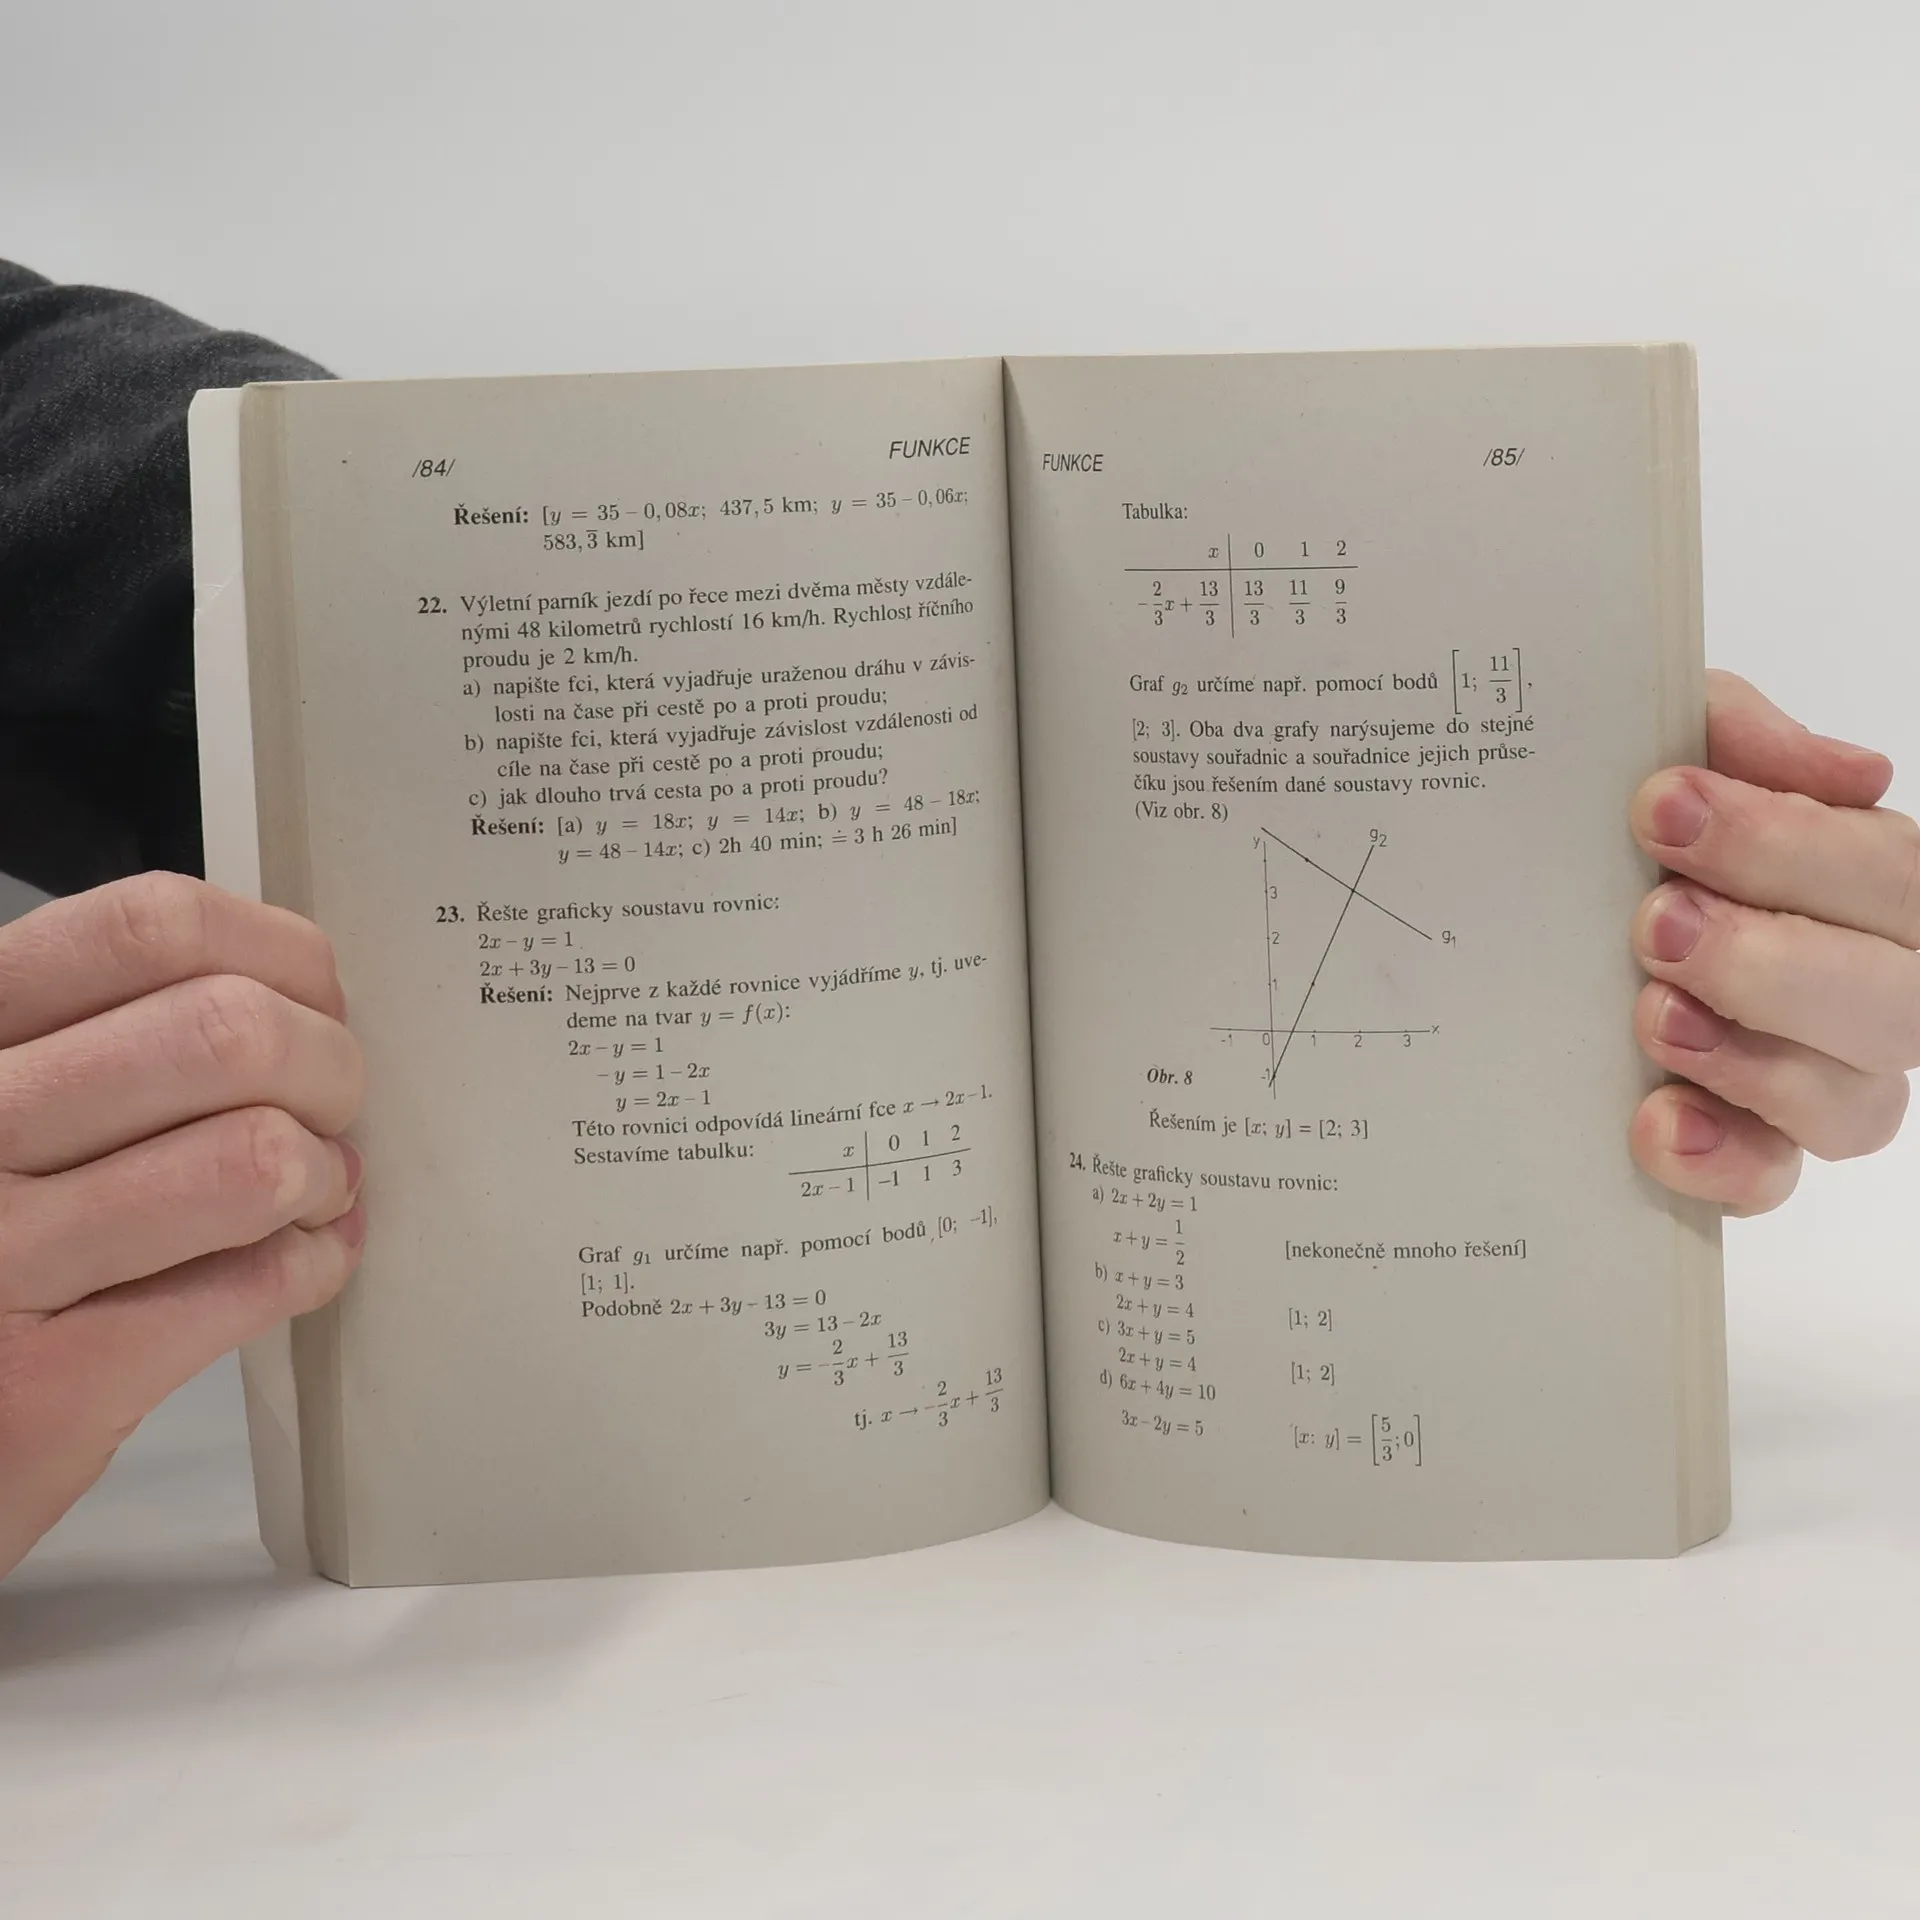 /84/ FUNKCE
Řešení: [y = 35 – 0,08x; 437,5 km; y = 35 – 0,06x;
583,3̅ km]
22. Výletní parník jezdí po řece mezi dvěma městy vzdále-
nými 48 kilometrů rychlostí 16 km/h. Rychlost říčního
proudu je 2 km/h.
a) napište fci, která vyjadřuje uraženou dráhu v závis-
losti na čase při cestě po a proti proudu;
b) napište fci, která vyjadřuje závislost vzdálenosti od
cíle na čase při cestě po a proti proudu;
c) jak dlouho trvá cesta po a proti proudu?
Řešení: [a) y = 18x; y = 14x; b) y = 48 – 18x;
y = 48 – 14x; c) 2h 40 min; ≐ 3 h 26 min]
23. Řešte graficky soustavu rovnic:
2x – y = 1
2x + 3y – 13 = 0
Řešení: Nejprve z každé rovnice vyjádříme y, tj. uve-
deme na tvar y = f(x):
2x – y = 1
– y = 1 – 2x
y = 2x – 1
Této rovnici odpovídá lineární fce x → 2x–1.
Sestavíme tabulku:
x 0 1 2
2x – 1 –1 1 3
Graf g₁ určíme např. pomocí bodů [0; –1],
[1; 1].
Podobně 2x + 3y – 13 = 0
3y = 13 – 2x
y = –2/3x + 13/3
tj. x → –2/3x + 13/3
FUNKCE /85/
Tabulka:
x 0 1 2
–2/3x + 13/3 13/3 11/3 9/3
Graf g₂ určíme např. pomocí bodů [1; 11/3],
[2; 3]. Oba dva grafy narýsujeme do stejné
soustavy souřadnic a souřadnice jejich průse-
číku jsou řešením dané soustavy rovnic.
(Viz obr. 8)
y g₂
3
2 g₁
1
-1 0 1 2 3 x
-1
Obr. 8
Řešením je [x; y] = [2; 3]
24. Řešte graficky soustavu rovnic:
a) 2x + 2y = 1
x + y = 1/2 [nekonečně mnoho řešení]
b) x + y = 3
2x + y = 4 [1; 2]
c) 3x + y = 5
2x + y = 4 [1; 2]
d) 6x + 4y = 10
3x – 2y = 5 [x: y] = [5/3; 0]